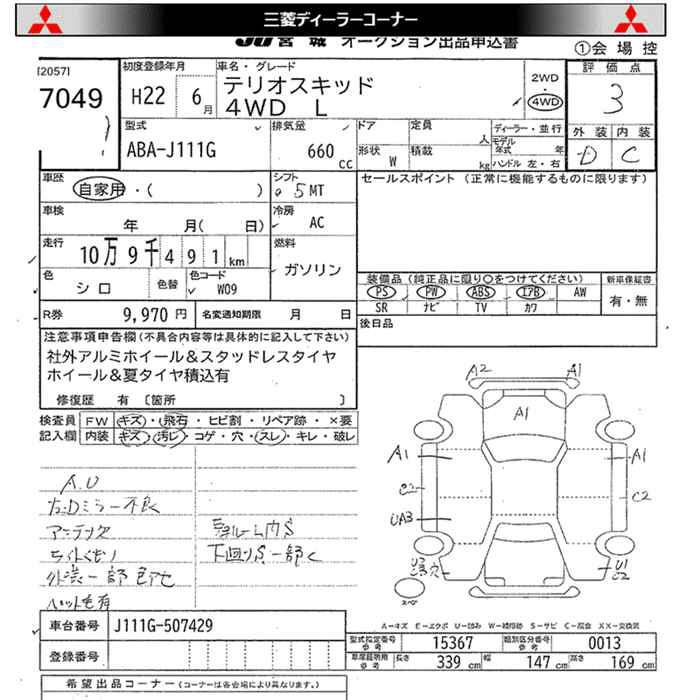 三菱ディーラーコーナー
JU宮城 オークション出品申込書
①会場控
[2057]
7049
初度登録年月
H22 6月
車名・グレード
テリオスキッド
4WD L
2WD
・
4WD
評価点
3
外装 内装
D C
型式
ABA-J111G
排気量
660 cc
ドア
定員 人
形状 W
積載 kg
ディーラー・並行
モデル年式 年
ハンドル 左・右
車歴
自家用・( )
シフト
5MT
セールスポイント (正常に機能するものに限ります)
車検
年 月( 日)
冷房
AC
走行
10万9千491km
燃料
ガソリン
色
シロ
色替
色コード
W09
装備品 (純正品に限り○をつけてください)
PS PW ABS エアB AW
SR ナビ TV カワ
新車保証書
有・無
R券 9,970円
名変通知期限 月 日
後日品
注意事項申告欄(不具合内容等は具体的に記入して下さい)
社外アルミホイール&スタッドレスタイヤ
ホイール&夏タイヤ積込有
修復歴 有 〔箇所 〕
検査員記入欄
FW キズ・飛石・ヒビ割・リペア跡・×要
内装 キズ・汚レ・コゲ・穴・スレ・キレ・破レ
A.U
左右Dミラー不良
アンテナ欠
ライトくもり
外装一部色アセ
ペット毛有
室内ルームS
下廻りS一部C
A2 A1
A1
A1 A1
C2 C2
UA3
U1
C2
スペア
A-キズ E-エクボ U-凹み W-補修跡 S-サビ C-腐食 XX-交換済
車台番号 J111G-507429
登録番号
型式指定番号 参考 15367
類別区分番号 参考 0013
車庫証明用 参考 長さ 339 cm 幅 147 cm 高さ 169 cm
希望出品コーナー (コーナーは各会場により異なります。)